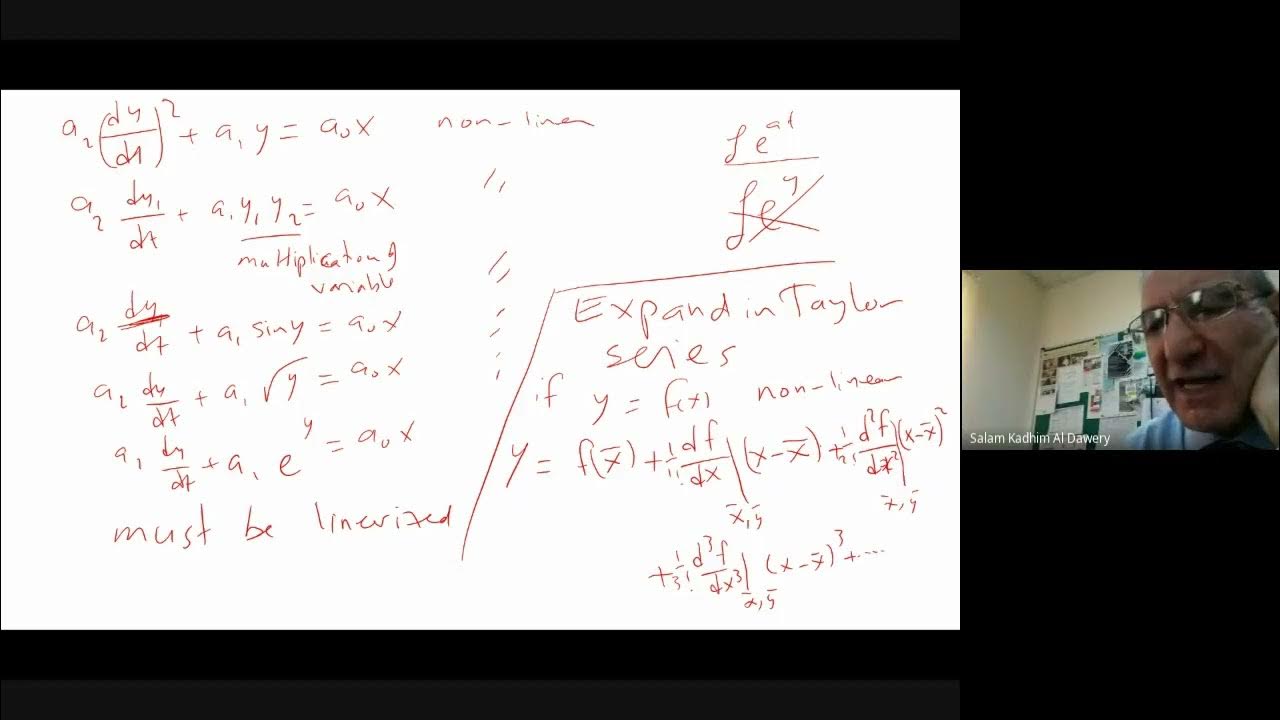 a₂(dy/dt)² + a₁y = a₀x non-linear
a₂ dy₁/dt + a₁y₁y₂ = a₀x ,,
multiplication of
variable ,,
a₂ dy/dt + a₁ sin y = a₀x
a₂ dy/dt + a₁ √y = a₀x
a₁ dy/dt + a₁ e^y = a₀x
must be linerized
ℒe^at
ℒe^y
Expand in Taylor
series
if y = f(x) non-linear
y = f(x̄) + 1/1! df/dx|x̄,ȳ (x-x̄) + 1/2! d²f/dx²|x̄,ȳ (x-x̄)²
+ 1/3! d³f/dx³|x̄,ȳ (x-x̄)³ + ....
Salam Kadhim Al Dawery